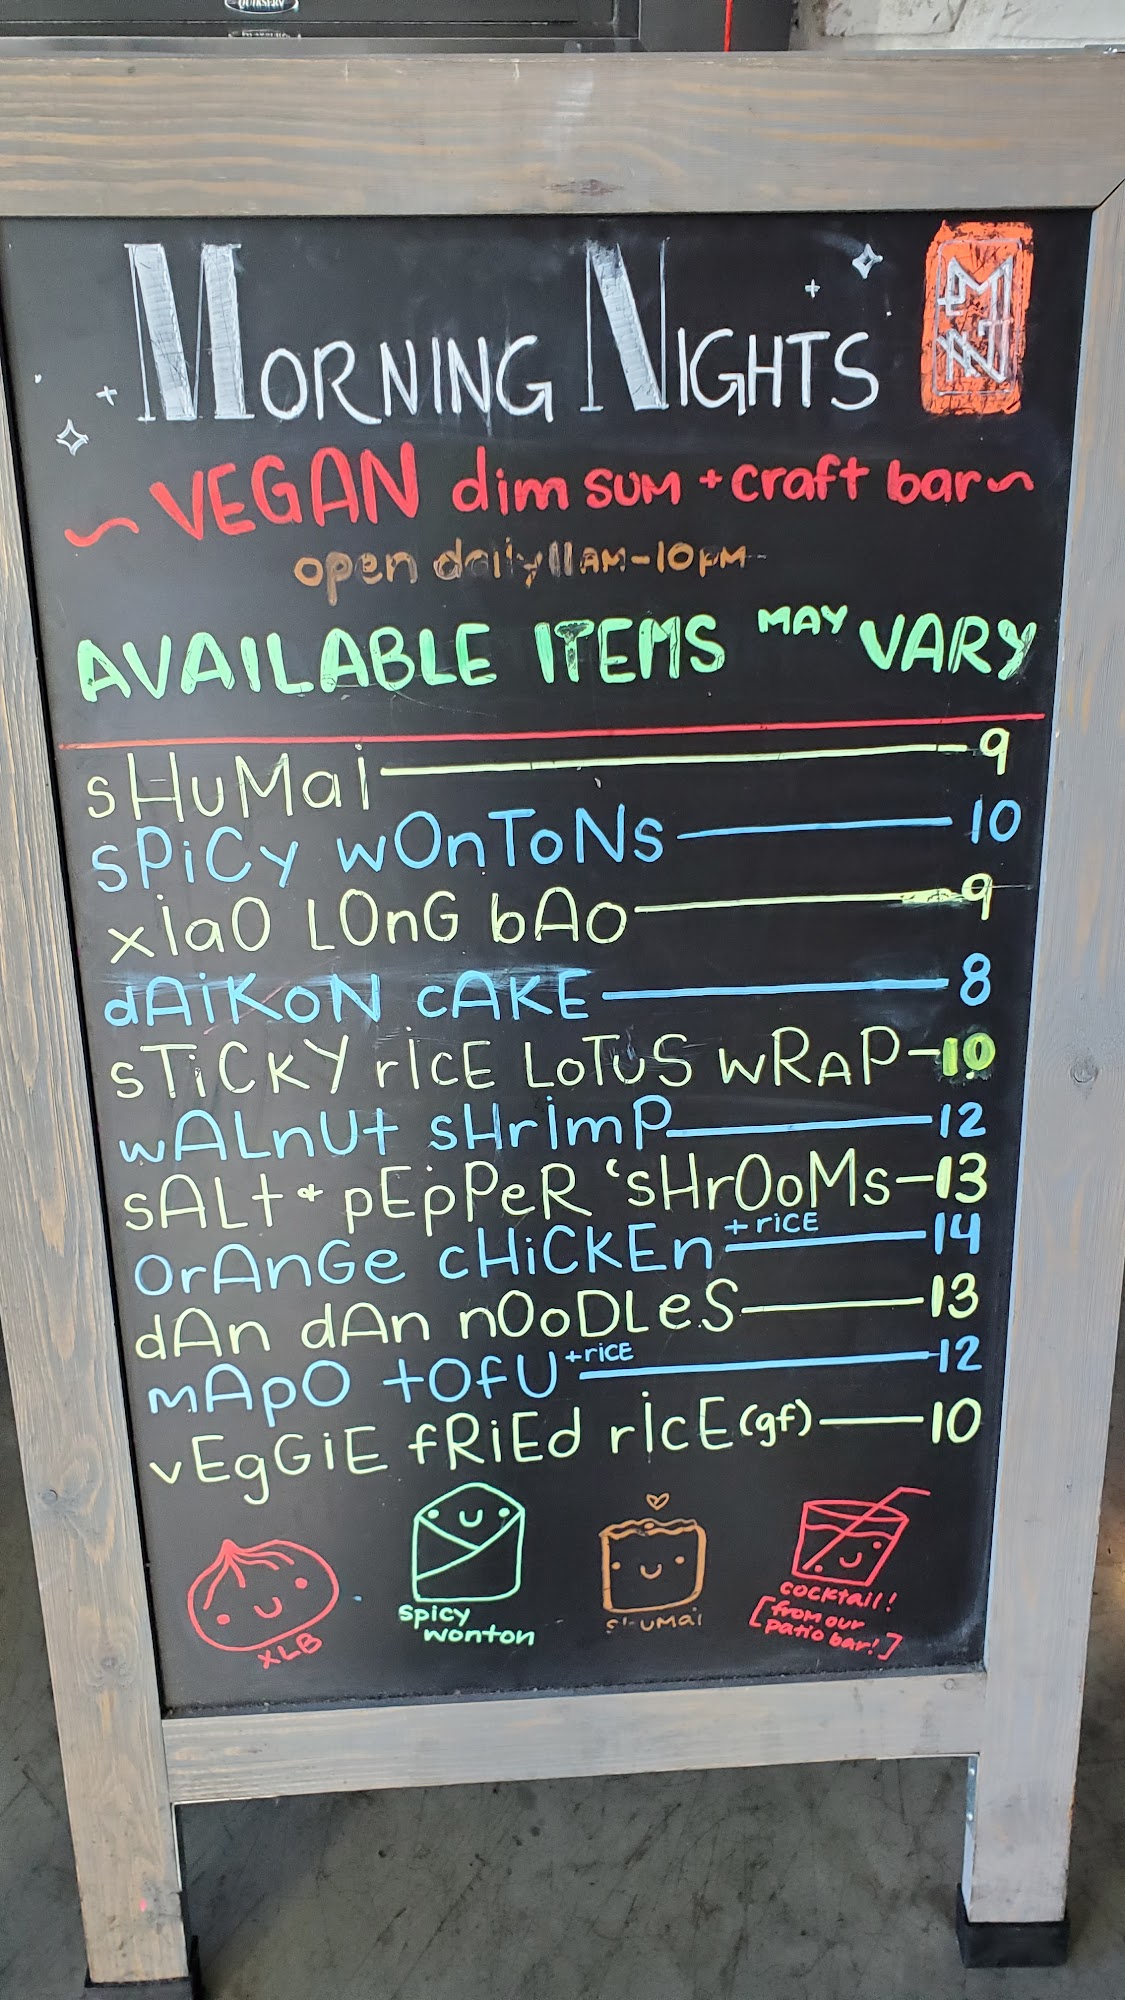 MORNING NIGHTS
~ VEGAN dim sum + craft bar ~
open daily 11AM-10PM
AVAILABLE ITEMS MAY VARY
sHuMai 9
sPiCy wOnToNs 10
xiaO LOnG bAo 9
dAiKoN cAKE 8
sTiCKY rIcE LoTuS wRAP 10
wALnUt sHrImP 12
sALt + pEpPeR 'sHrOoMs 13
OrAnGe cHiCKEn + riCE 14
dAn dAn nOoDLeS 13
mApO tOfU + riCE 12
vEgGiE fRiEd rIcE (gf) 10
XLB
spicy
wonton
sHuMai
cocktail!
[from our
patio bar!]